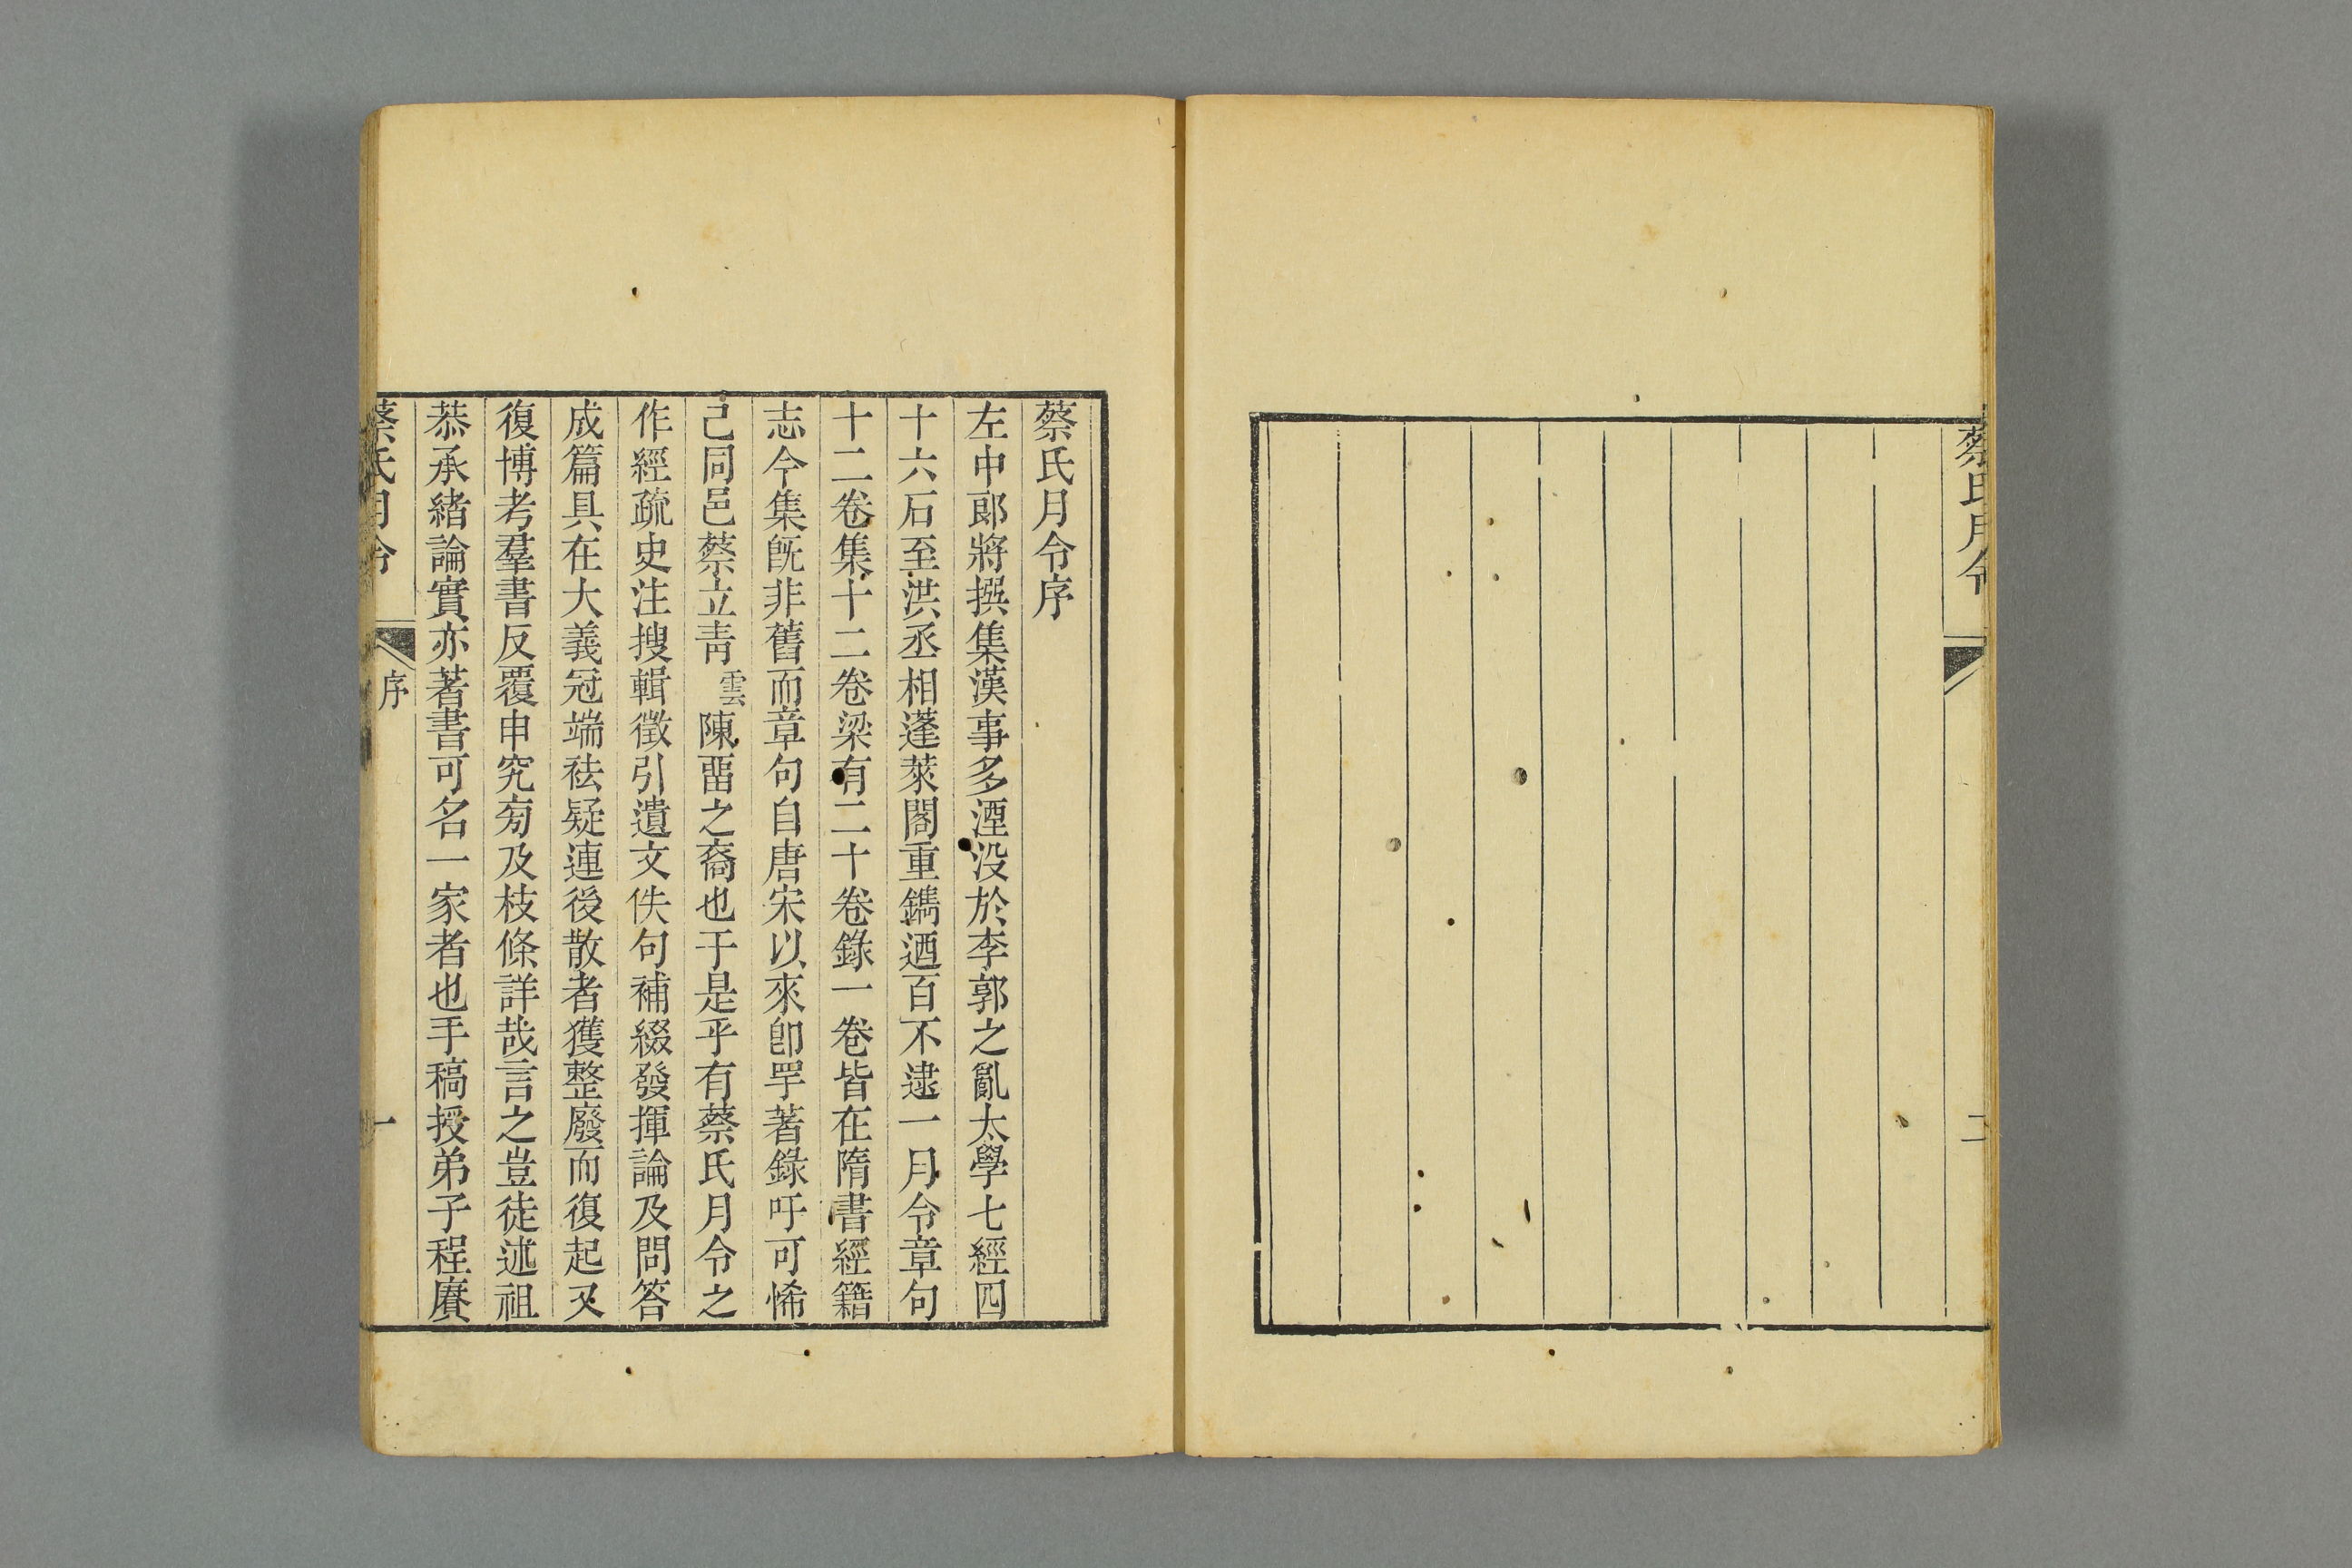 蔡氏月令
二
蔡氏月令序
左中郎將撰集漢事多湮没於李郭之亂太學七經四
十六石至洪丞相蓬萊閣重鐫迺百不逮一月令章句
十二卷集十二卷梁有二十卷錄一卷皆在隋書經籍
志今集旣非舊而章句自唐宋以來卽罕著錄吁可悕
己同邑蔡立靑雲陳畱之裔也于是乎有蔡氏月令之
作經疏史注搜輯徵引遺文佚句補綴發揮論及問答
成篇具在大義冠端袪疑連後散者獲整廢而復起又
復博考羣書反覆申究㫄及枝條詳哉言之豈徒述祖
恭承緒論實亦著書可名一家者也手稿授弟子程賡
蔡氏月令
序
一